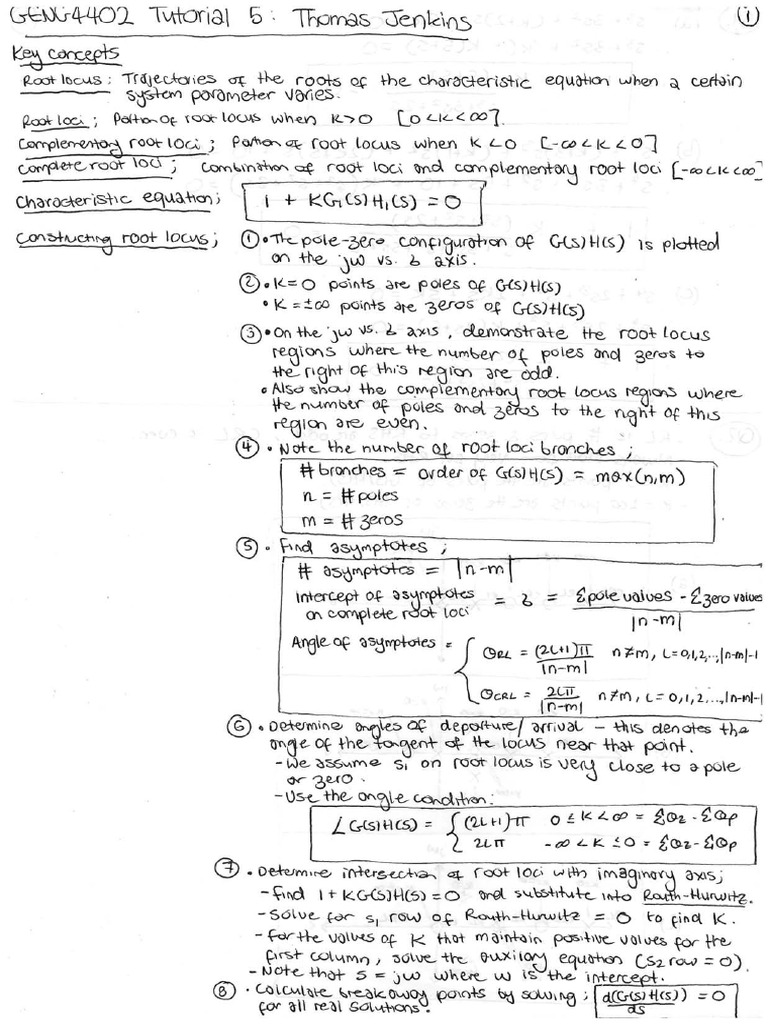 GENG4402 Tutorial 5: Thomas Jenkins
①
Key concepts
Root locus: Trajectories of the roots of the characteristic equation when a certain
system parameter varies.
Root loci; Portion of root locus when K>0 [0<K<∞].
Complementary root loci; Portion of root locus when K<0 [-∞<K<0]
Complete root loci; combination of root loci and complementary root loci [-∞<K<∞]
Characteristic equation; 1 + KG1(s)H1(s) = 0
Constructing root locus; ① • The pole-zero configuration of G(s)H(s) is plotted
on the jw vs. δ axis.
② • K=0 points are poles of G(s)H(s)
• K = ±∞ points are zeros of G(s)H(s)
③ • On the jw vs. δ axis, demonstrate the root locus
regions where the number of poles and zeros to
the right of this region are odd.
• Also show the complementary root locus regions where
the number of poles and zeros to the right of this
region are even.
④ • Note the number of root loci branches;
# branches = order of G(s)H(s) = max(n,m)
n = # poles
m = # zeros
⑤ • Find asymptotes;
# asymptotes = |n-m|
Intercept of asymptotes
on complete root loci = δ = Σpole values - Σzero values
|n-m|
Angle of asymptotes = { θRL = (2L+1)π / |n-m| n≠m, L=0,1,2,..,|n-m|-1
θCRL = 2Lπ / |n-m| n≠m, L=0,1,2,...,|n-m|-1
⑥ • Determine angles of departure/arrival - this denotes the
angle of the tangent of the locus near that point.
- We assume s1 on root locus is very close to a pole
or zero.
- Use the angle condition:
∠G(s)H(s) = { (2L+1)π 0≤K<∞ = Σθz - Σθp
2Lπ -∞<K≤0 = Σθz - Σθp
⑦ • Determine intersection of root loci with imaginary axis;
- find 1+KG(s)H(s)=0 and substitute into Routh-Hurwitz.
- Solve for s1 row of Routh-Hurwitz = 0 to find K.
- for the values of K that maintain positive values for the
first column, solve the auxilary equation (s2 row = 0).
- Note that s = jw where w is the intercept.
⑧ • Calculate breakaway points by solving; d(G(s)H(s))/ds = 0
for all real solutions.